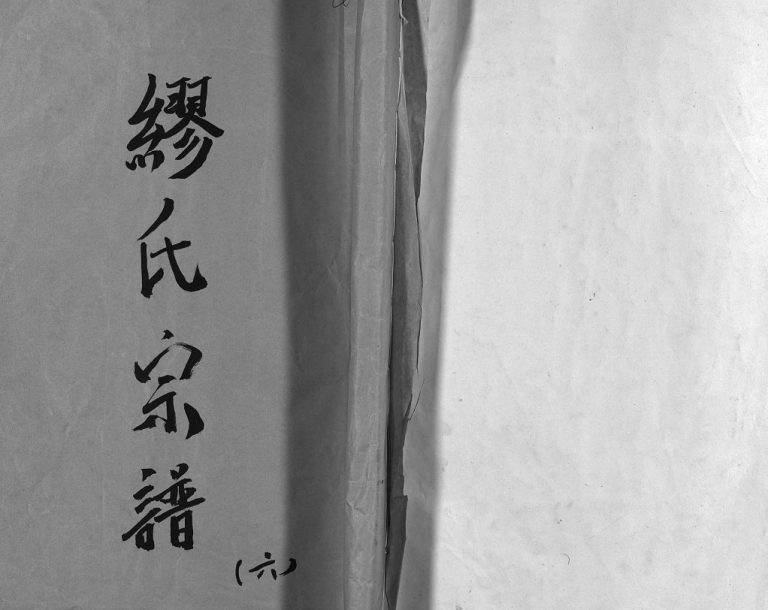 繆氏宗譜
(六)